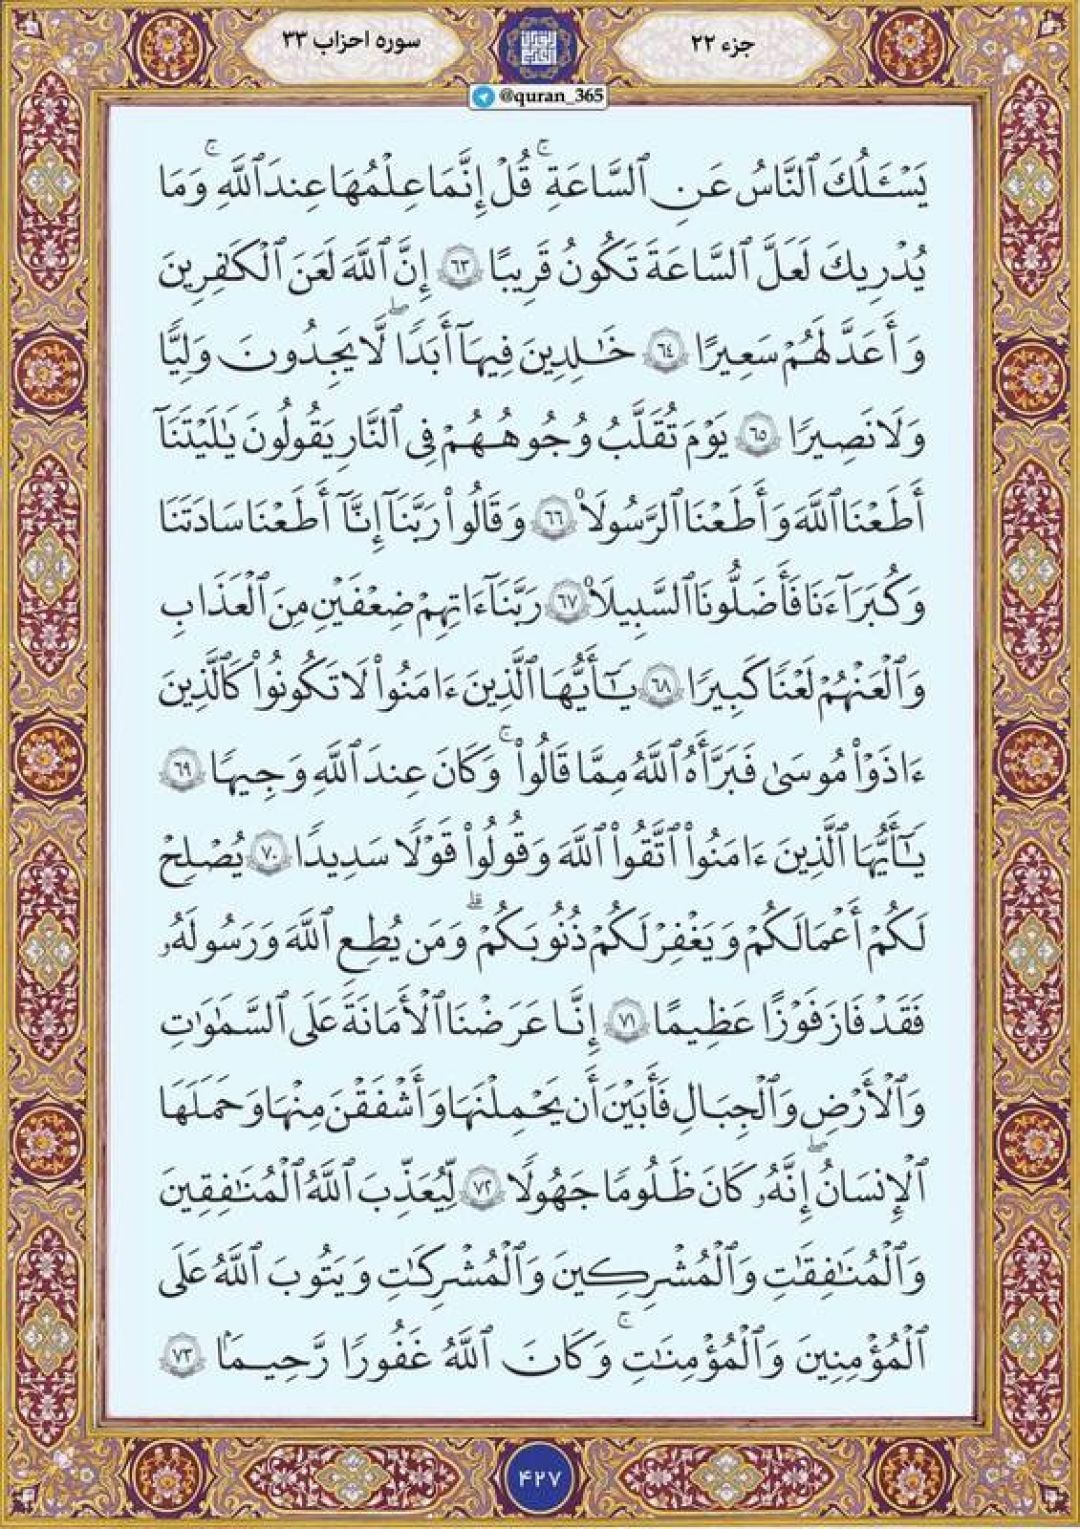 جزء ۲۲
سوره احزاب ۳۳
@quran_365
يَسْـَٔلُكَ ٱلنَّاسُ عَنِ ٱلسَّاعَةِۚ قُلْ إِنَّمَا عِلْمُهَا عِندَ ٱللَّهِۚ وَمَا
يُدْرِيكَ لَعَلَّ ٱلسَّاعَةَ تَكُونُ قَرِيبًا ٦٣ إِنَّ ٱللَّهَ لَعَنَ ٱلْكَـٰفِرِينَ
وَأَعَدَّ لَهُمْ سَعِيرًا ٦٤ خَـٰلِدِينَ فِيهَآ أَبَدًاۖ لَّا يَجِدُونَ وَلِيًّا
وَلَا نَصِيرًا ٦٥ يَوْمَ تُقَلَّبُ وُجُوهُهُمْ فِى ٱلنَّارِ يَقُولُونَ يَـٰلَيْتَنَآ
أَطَعْنَا ٱللَّهَ وَأَطَعْنَا ٱلرَّسُولَا۠ ٦٦ وَقَالُوا۟ رَبَّنَآ إِنَّآ أَطَعْنَا سَادَتَنَا
وَكُبَرَآءَنَا فَأَضَلُّونَا ٱلسَّبِيلَا۠ ٦٧ رَبَّنَآ ءَاتِهِمْ ضِعْفَيْنِ مِنَ ٱلْعَذَابِ
وَٱلْعَنْهُمْ لَعْنًا كَبِيرًا ٦٨ يَـٰٓأَيُّهَا ٱلَّذِينَ ءَامَنُوا۟ لَا تَكُونُوا۟ كَٱلَّذِينَ
ءَاذَوْا۟ مُوسَىٰ فَبَرَّأَهُ ٱللَّهُ مِمَّا قَالُوا۟ۚ وَكَانَ عِندَ ٱللَّهِ وَجِيهًا ٦٩
يَـٰٓأَيُّهَا ٱلَّذِينَ ءَامَنُوا۟ ٱتَّقُوا۟ ٱللَّهَ وَقُولُوا۟ قَوْلًا سَدِيدًا ٧٠ يُصْلِحْ
لَكُمْ أَعْمَـٰلَكُمْ وَيَغْفِرْ لَكُمْ ذُنُوبَكُمْۗ وَمَن يُطِعِ ٱللَّهَ وَرَسُولَهُۥ
فَقَدْ فَازَ فَوْزًا عَظِيمًا ٧١ إِنَّا عَرَضْنَا ٱلْأَمَانَةَ عَلَى ٱلسَّمَـٰوَٰتِ
وَٱلْأَرْضِ وَٱلْجِبَالِ فَأَبَيْنَ أَن يَحْمِلْنَهَا وَأَشْفَقْنَ مِنْهَا وَحَمَلَهَا
ٱلْإِنسَـٰنُۖ إِنَّهُۥ كَانَ ظَلُومًا جَهُولًا ٧٢ لِّيُعَذِّبَ ٱللَّهُ ٱلْمُنَـٰفِقِينَ
وَٱلْمُنَـٰفِقَـٰتِ وَٱلْمُشْرِكِينَ وَٱلْمُشْرِكَـٰتِ وَيَتُوبَ ٱللَّهُ عَلَى
ٱلْمُؤْمِنِينَ وَٱلْمُؤْمِنَـٰتِۚ وَكَانَ ٱللَّهُ غَفُورًا رَّحِيمًۢا ٧٣
۴۲۷